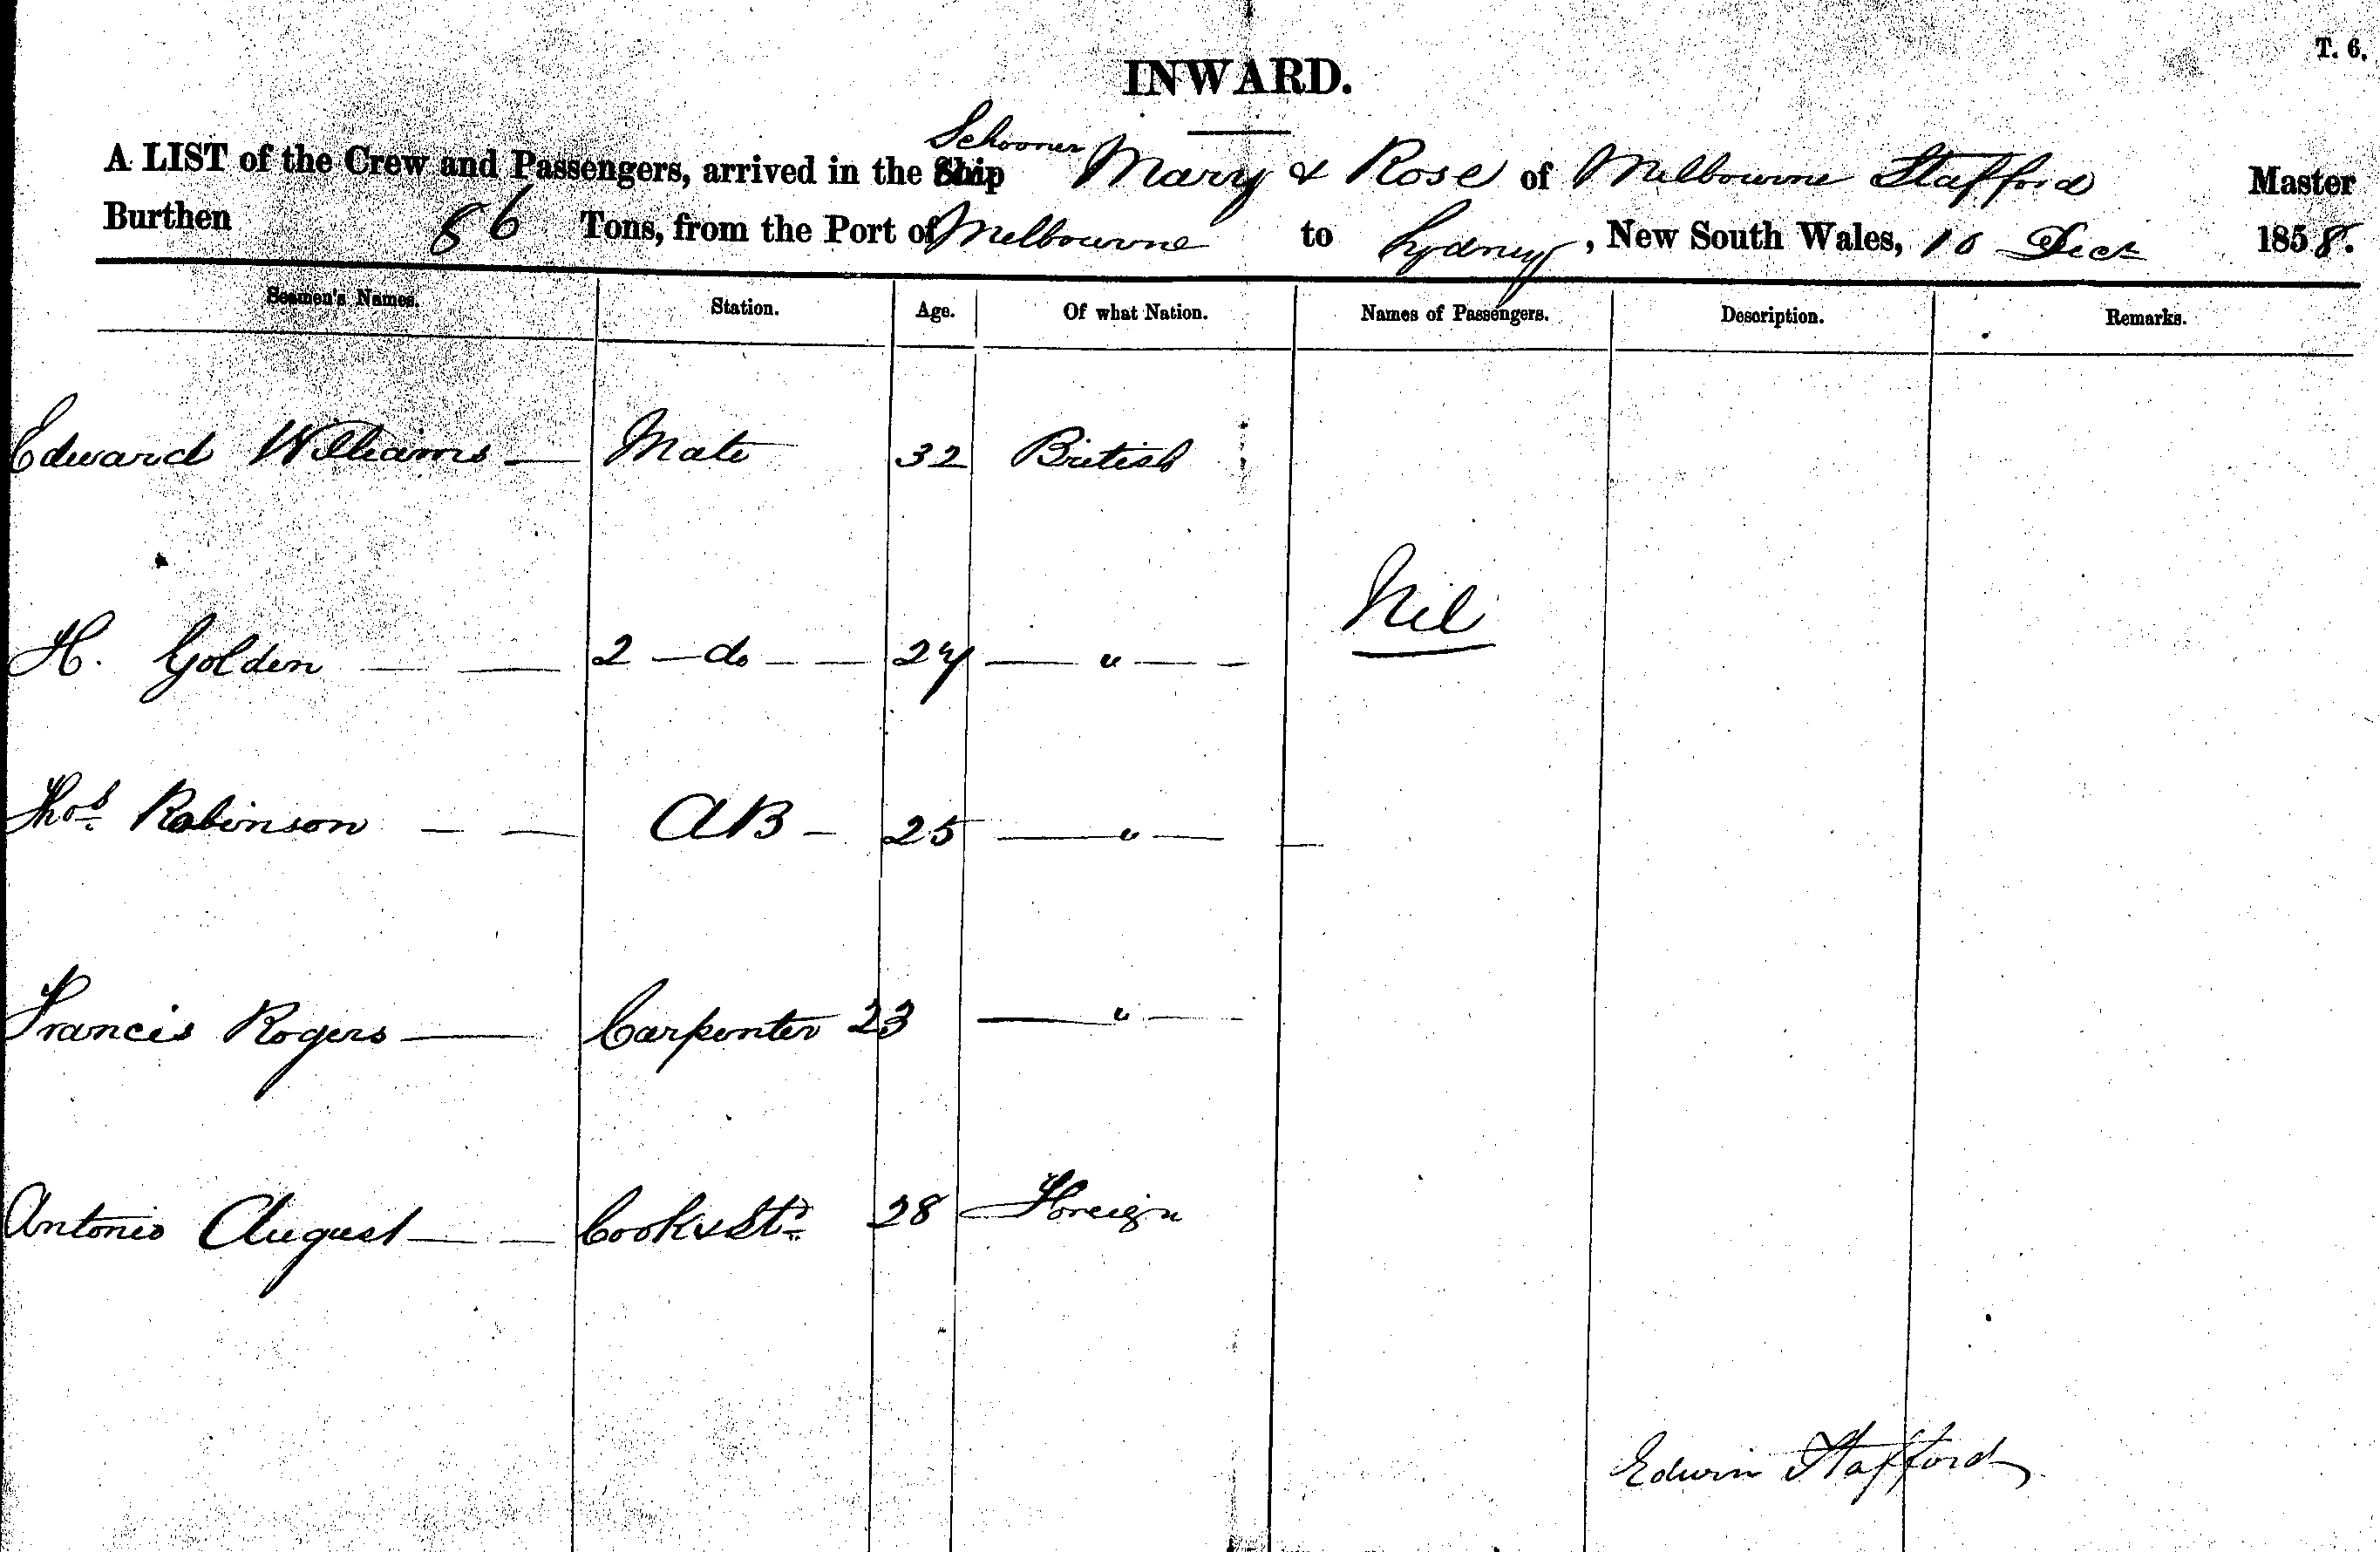 T. 6.
INWARD.
Schooner
A LIST of the Crew and Passengers, arrived in the Ship Mary & Rose of Melbourne Stafford Master
Burthen 86 Tons, from the Port of Melbourne to Sydney, New South Wales, 10 Decr 1858.
Seamen's Names. Station. Age. Of what Nation. Names of Passengers. Description. Remarks.
Edward Williams — Mate 32 British
Nil
H. Golden — — 2 — do — — 27 — " — —
Thos. Robinson — — AB — 25 — " — —
Francis Rogers — Carpenter 23 — " —
Antonio August — — Cook & Std 28 Foreign
Edwin Stafford